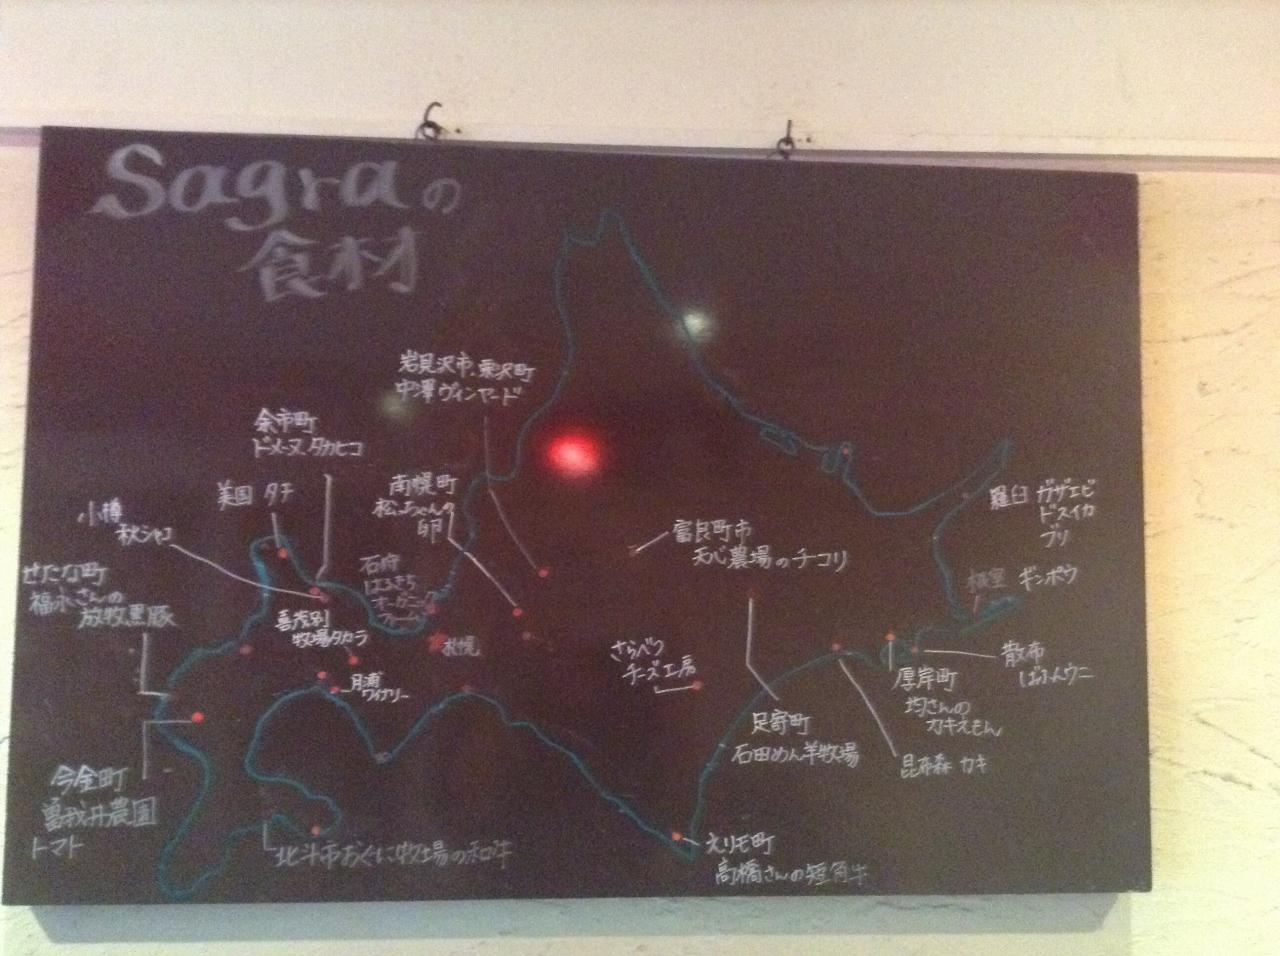 Sagraの
食材
岩見沢市、栗沢町
中澤ヴィンヤード
余市町
ドメーヌ タカヒコ
美国 タチ
南幌町
松ちゃんの
卵
小樽
秋シャコ
せたな町
福永さんの
放牧黒豚
石狩
はるきち
オーガニック
ファーム
喜茂別
牧場タカラ
札幌
月浦
ワイナリー
富良町市
天心農場のチコリ
羅臼 ガザエビ
ドスイカ
ブリ
根室 ギンポウ
さらべつ
チーズ工房
散布
ばふんウニ
厚岸町
均さんの
カキえもん
足寄町
石田めん羊牧場
昆布森 カキ
今金町
曽我井農園
トマト
北斗市おぐに牧場の和牛
えりモ町
高橋さんの短角牛